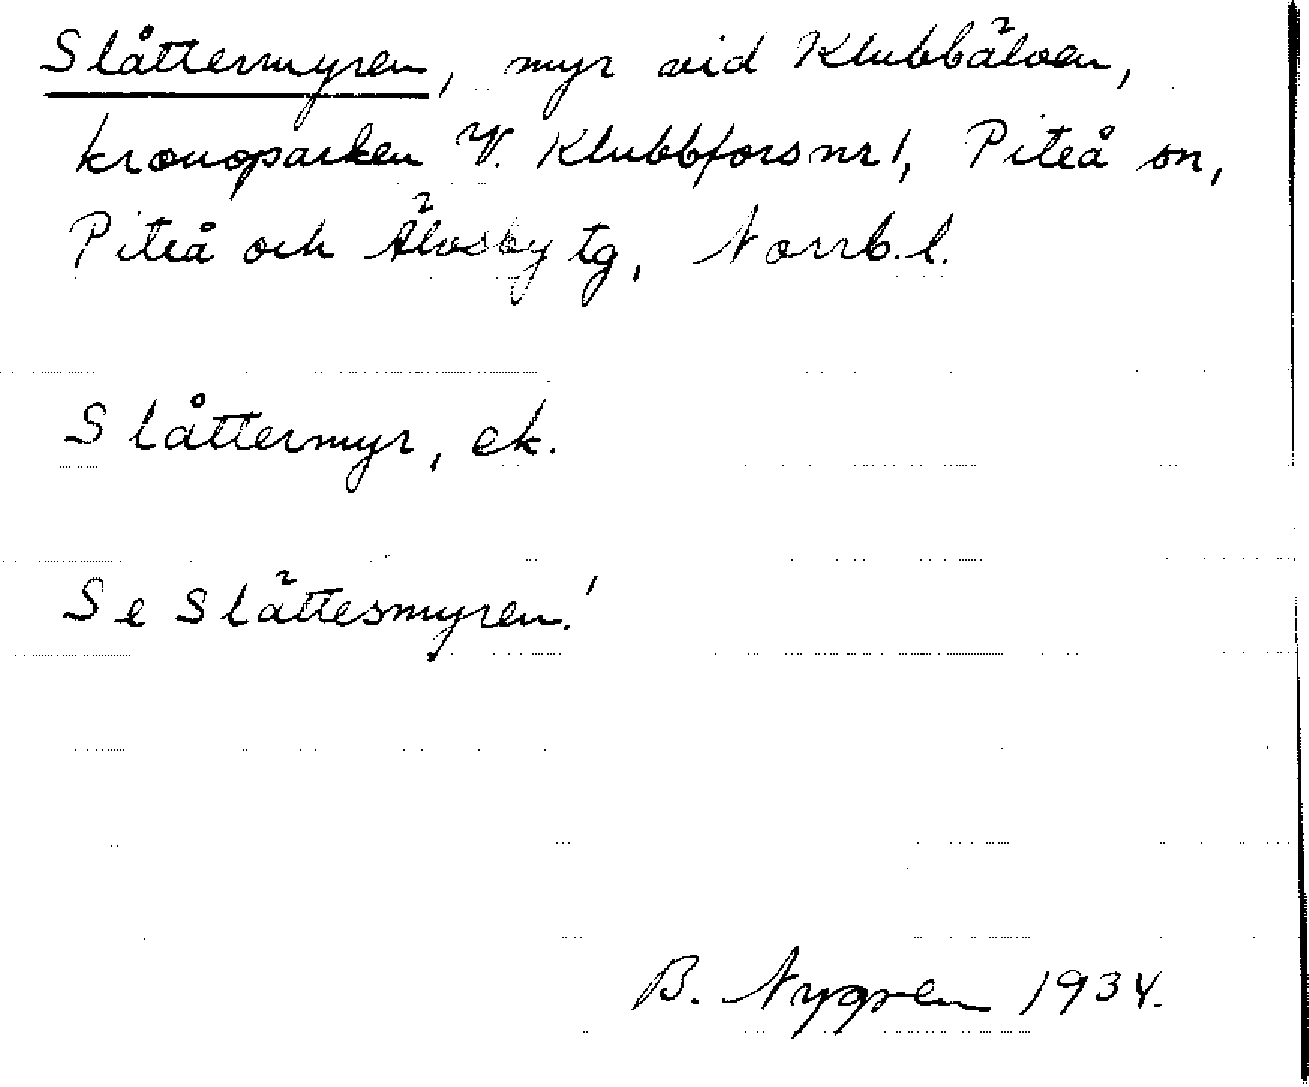 Slåttermyren, myr vid Klubbälven,
kronoparken V. Klubbfors nr 1, Piteå sn,
Piteå och Älvsby tg, Norrb. l.
Slåttermyr, ek.
Se Slåttesmyren!
B. Nygren 1934.